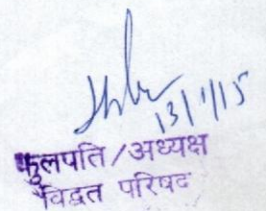 13/1/15
कुलपति/अध्यक्ष
विद्वत परिषद